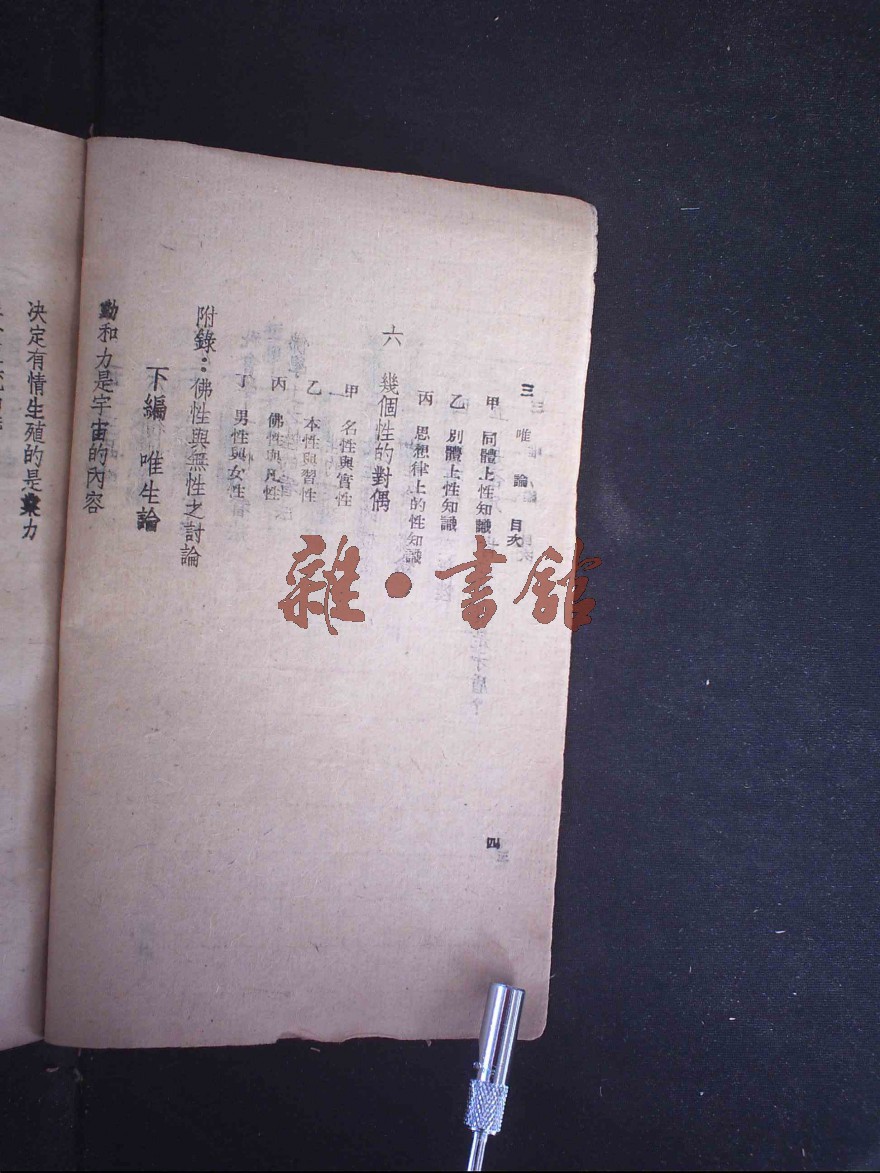 三唯論　目次
甲　同體上性知識
乙　別體上性知識
丙　思想律上的性知識
六　幾個性的對偶
甲　名性與實性
乙　本性與習性
丙　佛性與凡性
丁　男性與女性
附錄：佛性與無性之討論
下編　唯生論
動和力是宇宙的內容
四
决定有情生殖的是業力
雜·書館